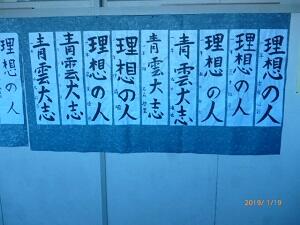 理想の人
理想の人
理想の人
青雲大志
青雲大志
理想の人
理想の人
青雲大志
青雲大志
理想の人
2019/1/19